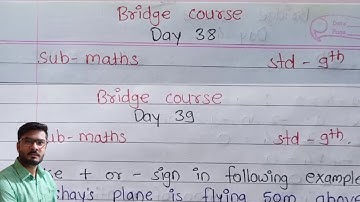 Bridge course
Day 38
Sub-maths std-9th
Bridge course
Day 39
ub-maths std-9th.
e + or - sign in following example
shay's plane is flying 50m above